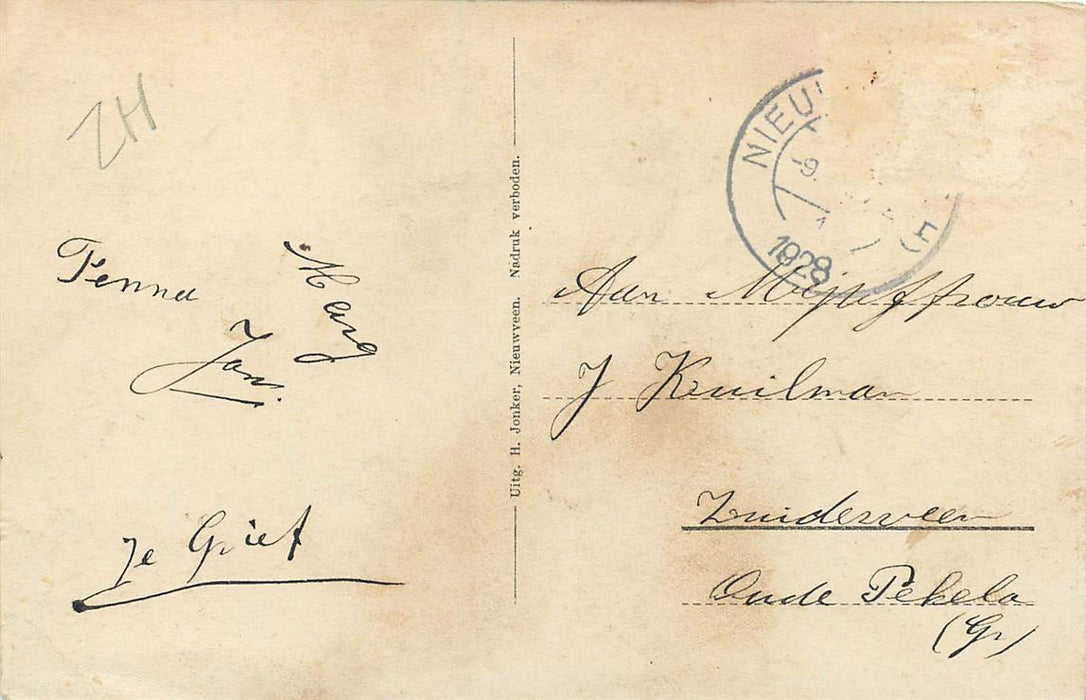 ZH
Fenna
Marg
Jan.
Je Griet
Uitg. H. Jonker, Nieuwveen. Nadruk verboden.
NIEU
-9.
1928
Aan Mejuffrouw
J Kuilman
Zuiderveen
Oude Pekela
(Gr)